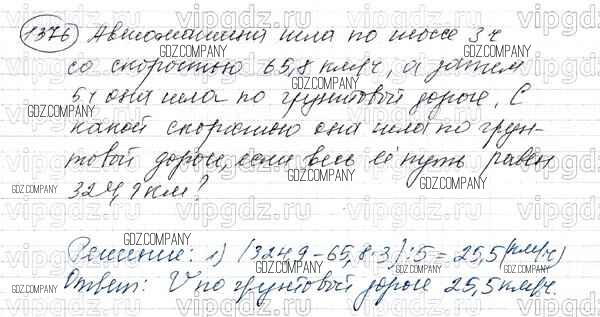 1376 Автомашина шла по шоссе 3 ч
со скоростью 65,8 км/ч, а затем
5 ч она шла по грунтовой дороге. С
какой скоростью она шла по грун-
товой дороге, если весь её путь равен
324,9 км?
Решение: 1) (324,9-65,8·3):5=25,5(км/ч)
Ответ: V по грунтовой дороге 25,5 км/ч.
GDZ.COMPANY
vipgdz.ru